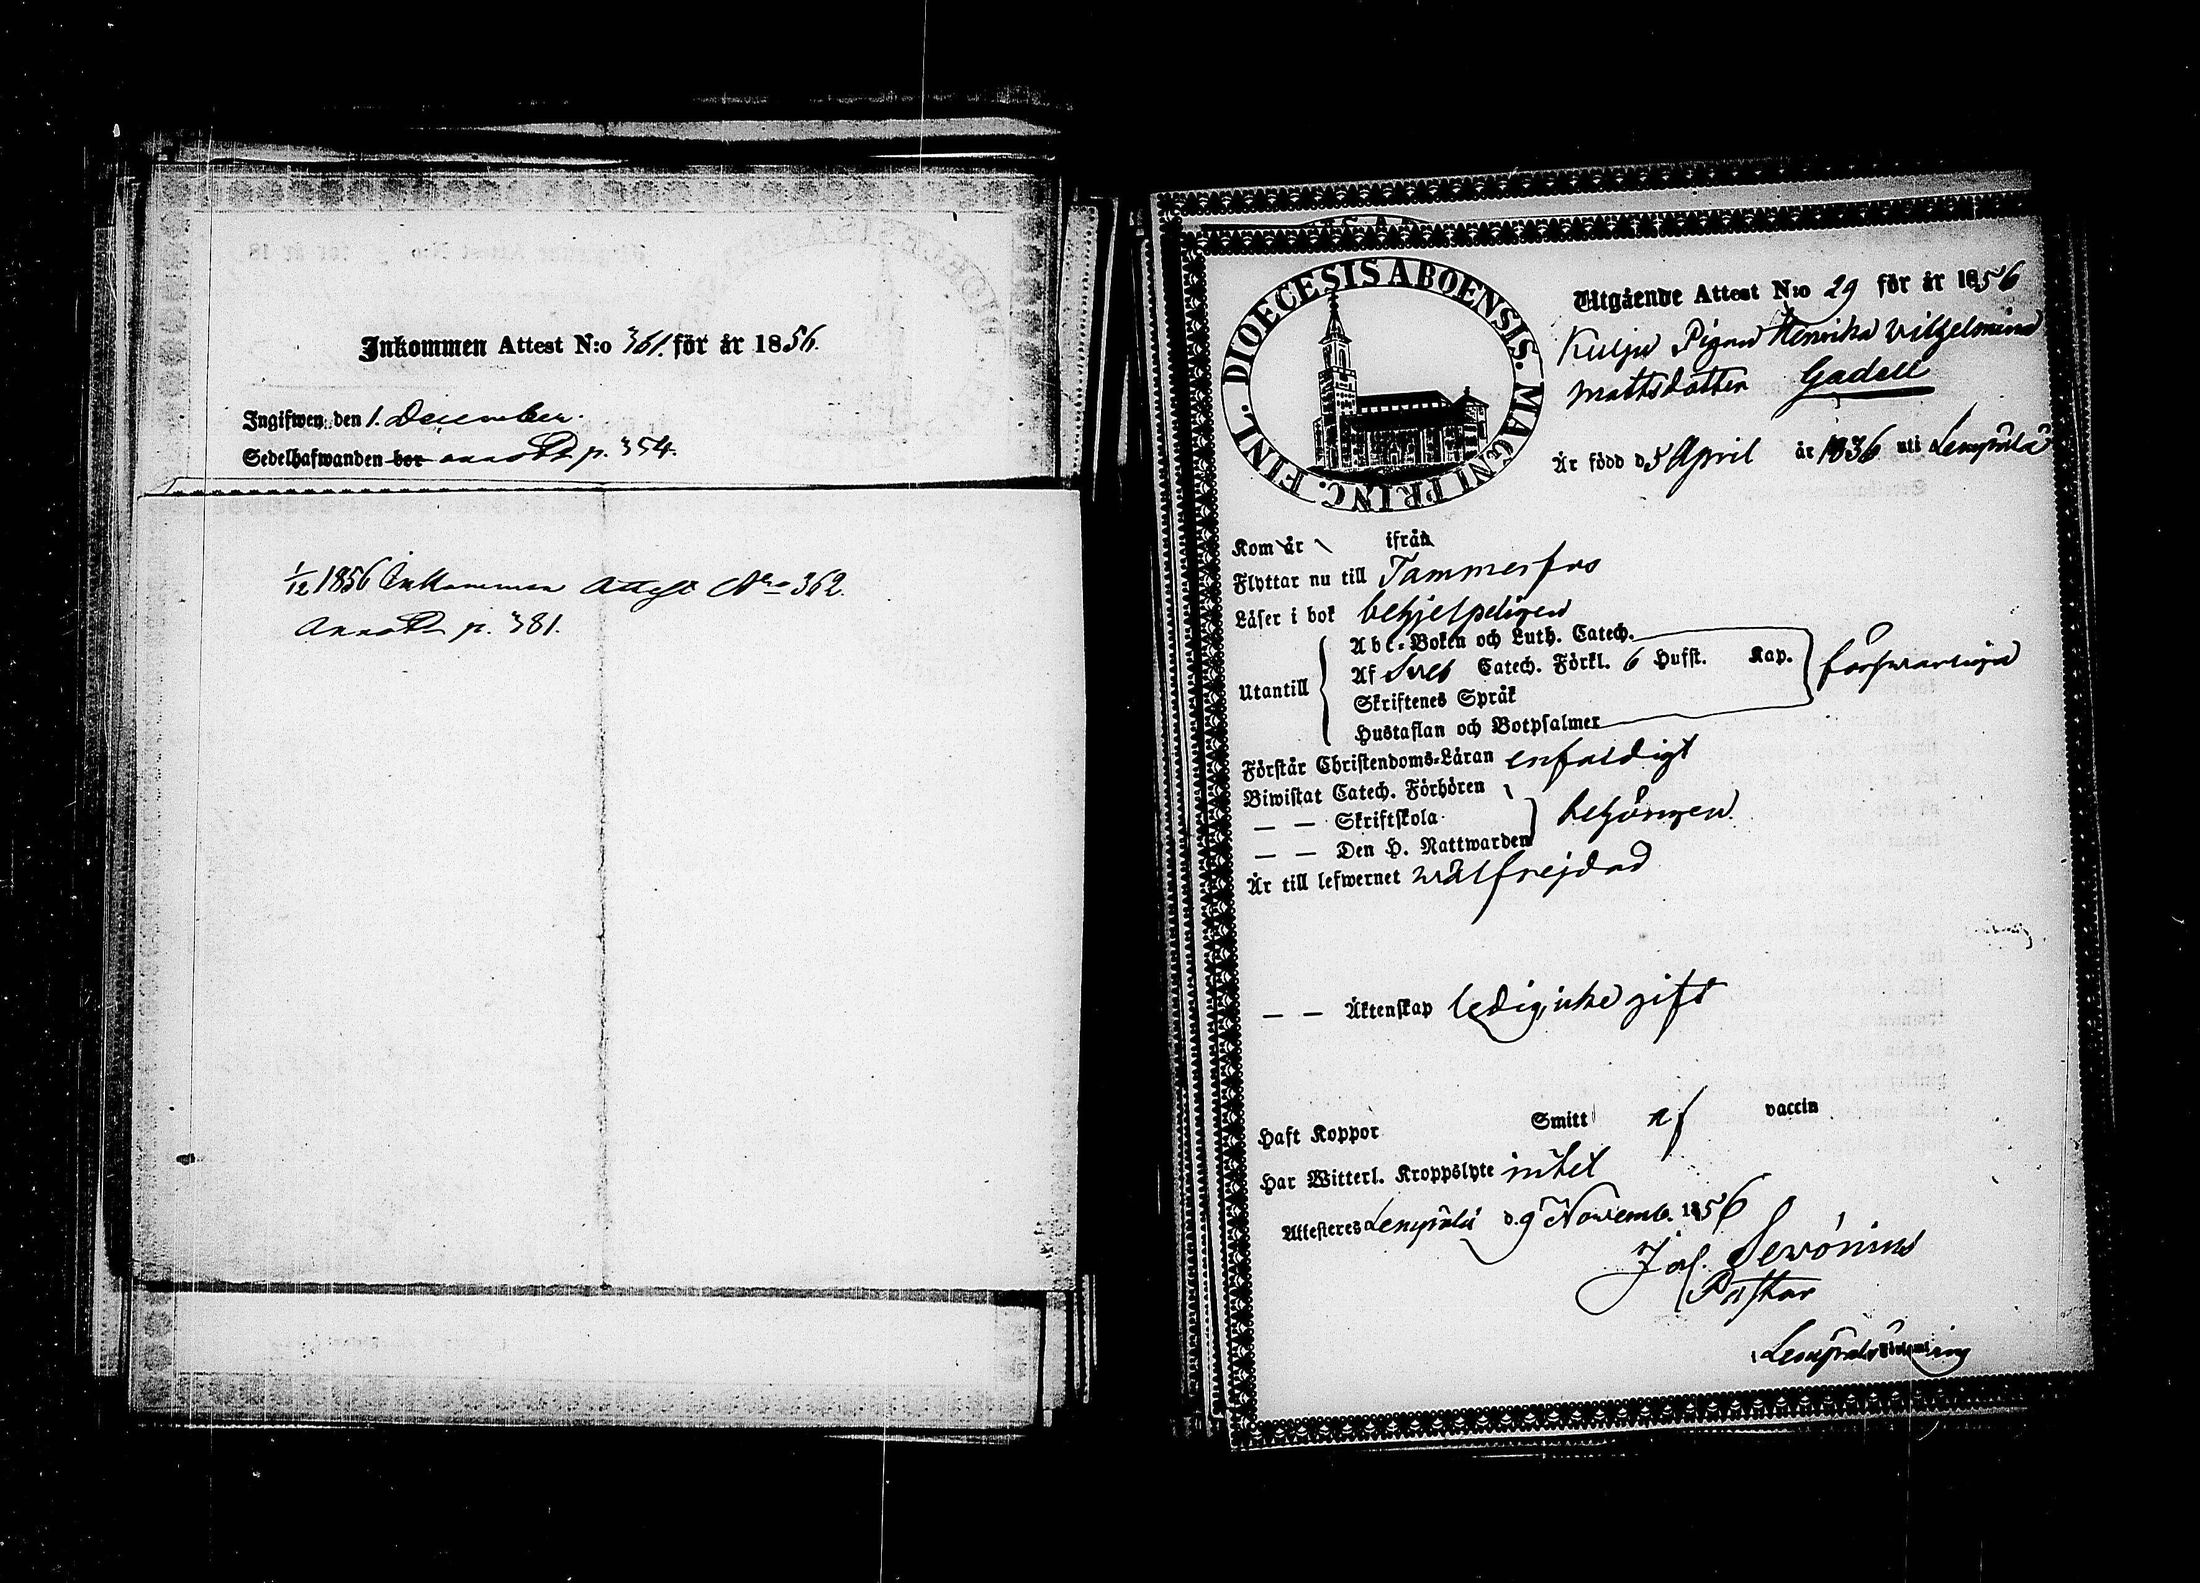 Inkommen Attest N:o 361. för år 1856.
Ingifwen den 1. December.
Sedelhafwanden bor annot p. 354.
1/12 1856 Inkommen Attest No 362.
Annot p. 381.
DIOECESIS ABOENSIS. MAGNI PRINC. FINL.
Utgående Attest N:o 29 för år 1856
Kulju Pigan Henrika Vilhelmina
Mattsdotter Gadell
Är född d. 5 April år 1836 uti Lempälä
Kom år ifrån
Flyttar nu till Tammerfors
Läser i bok behjelpeligen
Utantill
Abc-Boken och Luth. Catech.
Af Sveb Catech. Förkl. 6 Hufst. Kap. försvarliga
Skriftenes Språk
Hustaflan och Botpsalmer
Förstår Christendoms-Läran enfaldigt
Biwistat Catech. Förhören
— — Skriftskola behörigen
— — Den H. Nattwarden
Är till lefwernet wälfrejdad
— — Äktenskap ledig, icke gift
Haft Koppor Smitt af vaccin
Har Witterl. Kroppslyte intet
Attesteres Lempälä d. 9 Novemb. 1856
Jos. Serónius
Pastor